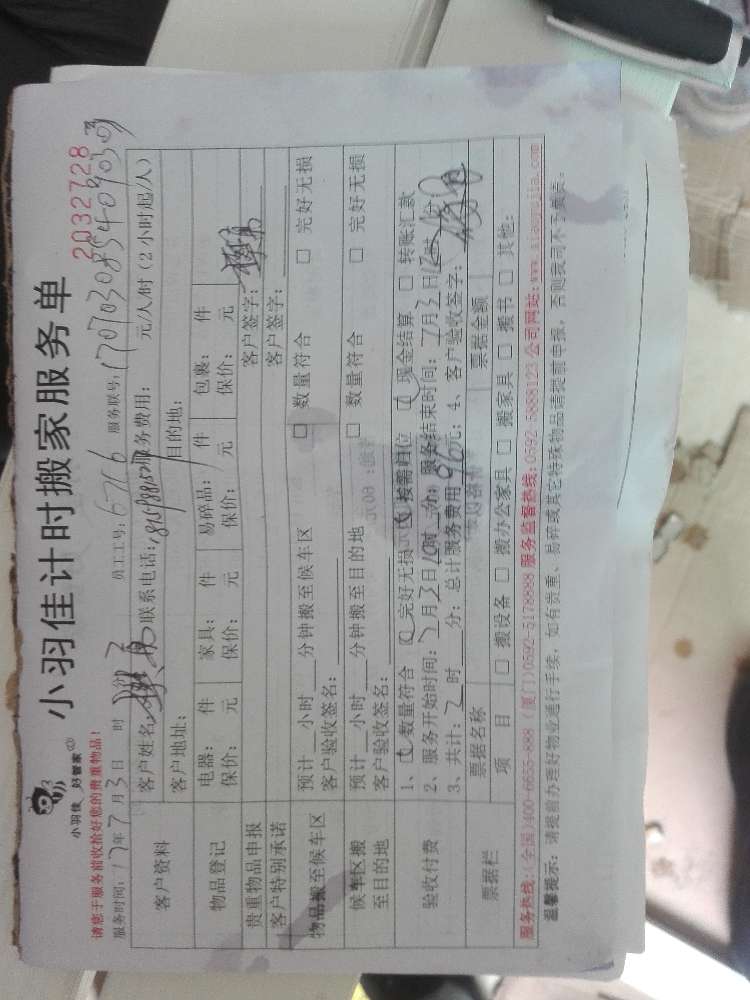 小羽佳 好管家
小羽佳计时搬家服务单
2032728
请您于服务前收拾好您的贵重物品!
服务时间: 17年7月3日 时 分 员工工号: 6766 服务联号: 170703085409030
客户资料
客户姓名: 联系电话: 服务费用: 元/人/时(2小时起/人)
客户地址: 目的地:
物品登记
电器: 件 家具: 件 易碎品: 件 包裹: 件
保价: 元 保价: 元 保价: 元 保价: 元
贵重物品申报 客户签字:
客户特别承诺 客户签字:
物品搬至候车区
预计 小时 分钟搬至候车区 □ 数量符合 □ 完好无损
客户验收签名:
候车区搬至目的地
预计 小时 分钟搬至目的地 □ 数量符合 □ 完好无损
客户验收签名:
验收付费
1、 数量符合 完好无损 按需归位 现金结算 □ 转账汇款
2、服务开始时间: 7月3日10时 分; 服务结束时间: 7月3日12时 分
3、共计: 2时 分; 总计服务费用 元; 4、客户验收签字:
票据栏
票据名称 票据金额
项 目 □ 搬设备 □ 搬办公家具 □ 搬家具 □ 搬书 □ 其他:
服务热线:(全国)400-6655-888 (厦门)0592-5178888 服务监督热线:0592-5888123 公司网站:www.xiaoyujia.com
温馨提示: 请提前办理好物业通行手续, 如有贵重、易碎或其它特殊物品请提前申报, 否则我司不予赔偿。